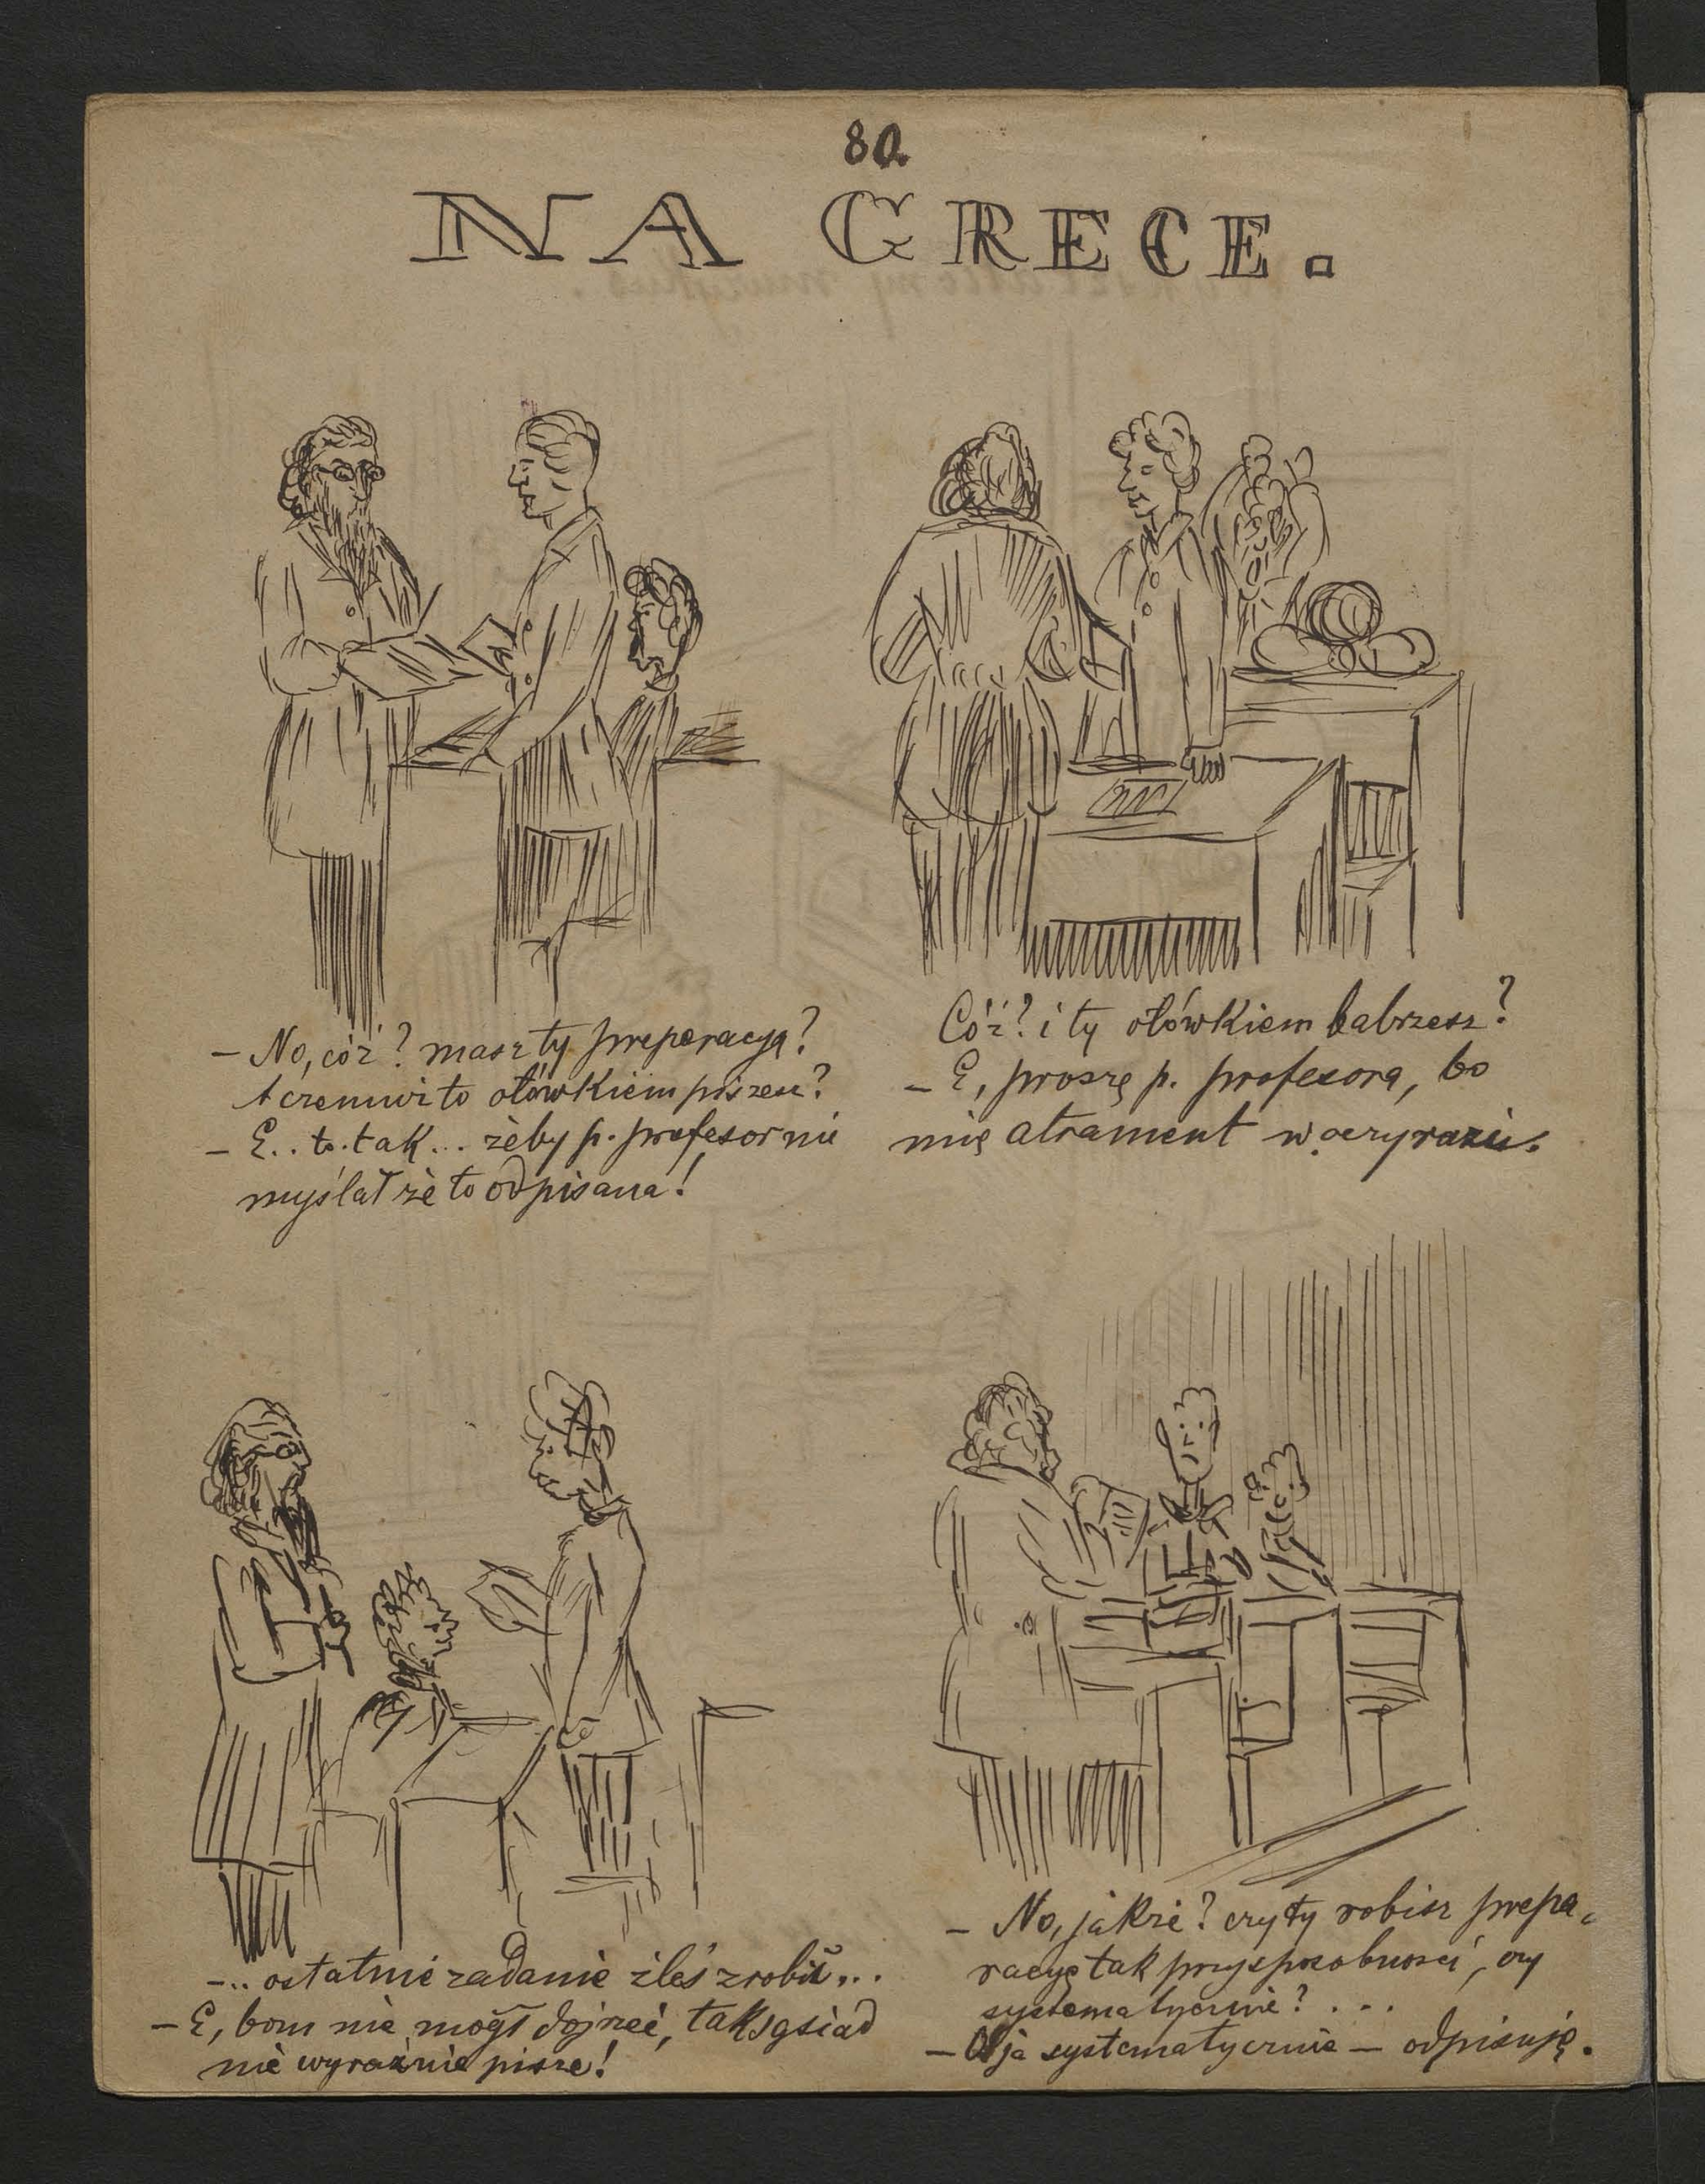 80.
NA GRECE.
– No, cóż? masz ty preperacyą?
A czemuż to ołówkiem piszesz?
– E.. to. tak... żeby p. profesor nie
myślał że to odpisana!
Cóż? i ty ołówkiem babrzesz?
– E, proszę p. profesora, bo
mię atrament w oczy razi.
–.. ostatnie zadanie źleś zrobił...
– E, bom nie mógł dojrzeć, tak sąsiad
nie wyraźnie pisze!
– No, jakże? czy ty robisz prepa-
racyę tak przysposobności, czy
systematycznie? ...
– O ja systematycznie – odpisuję.